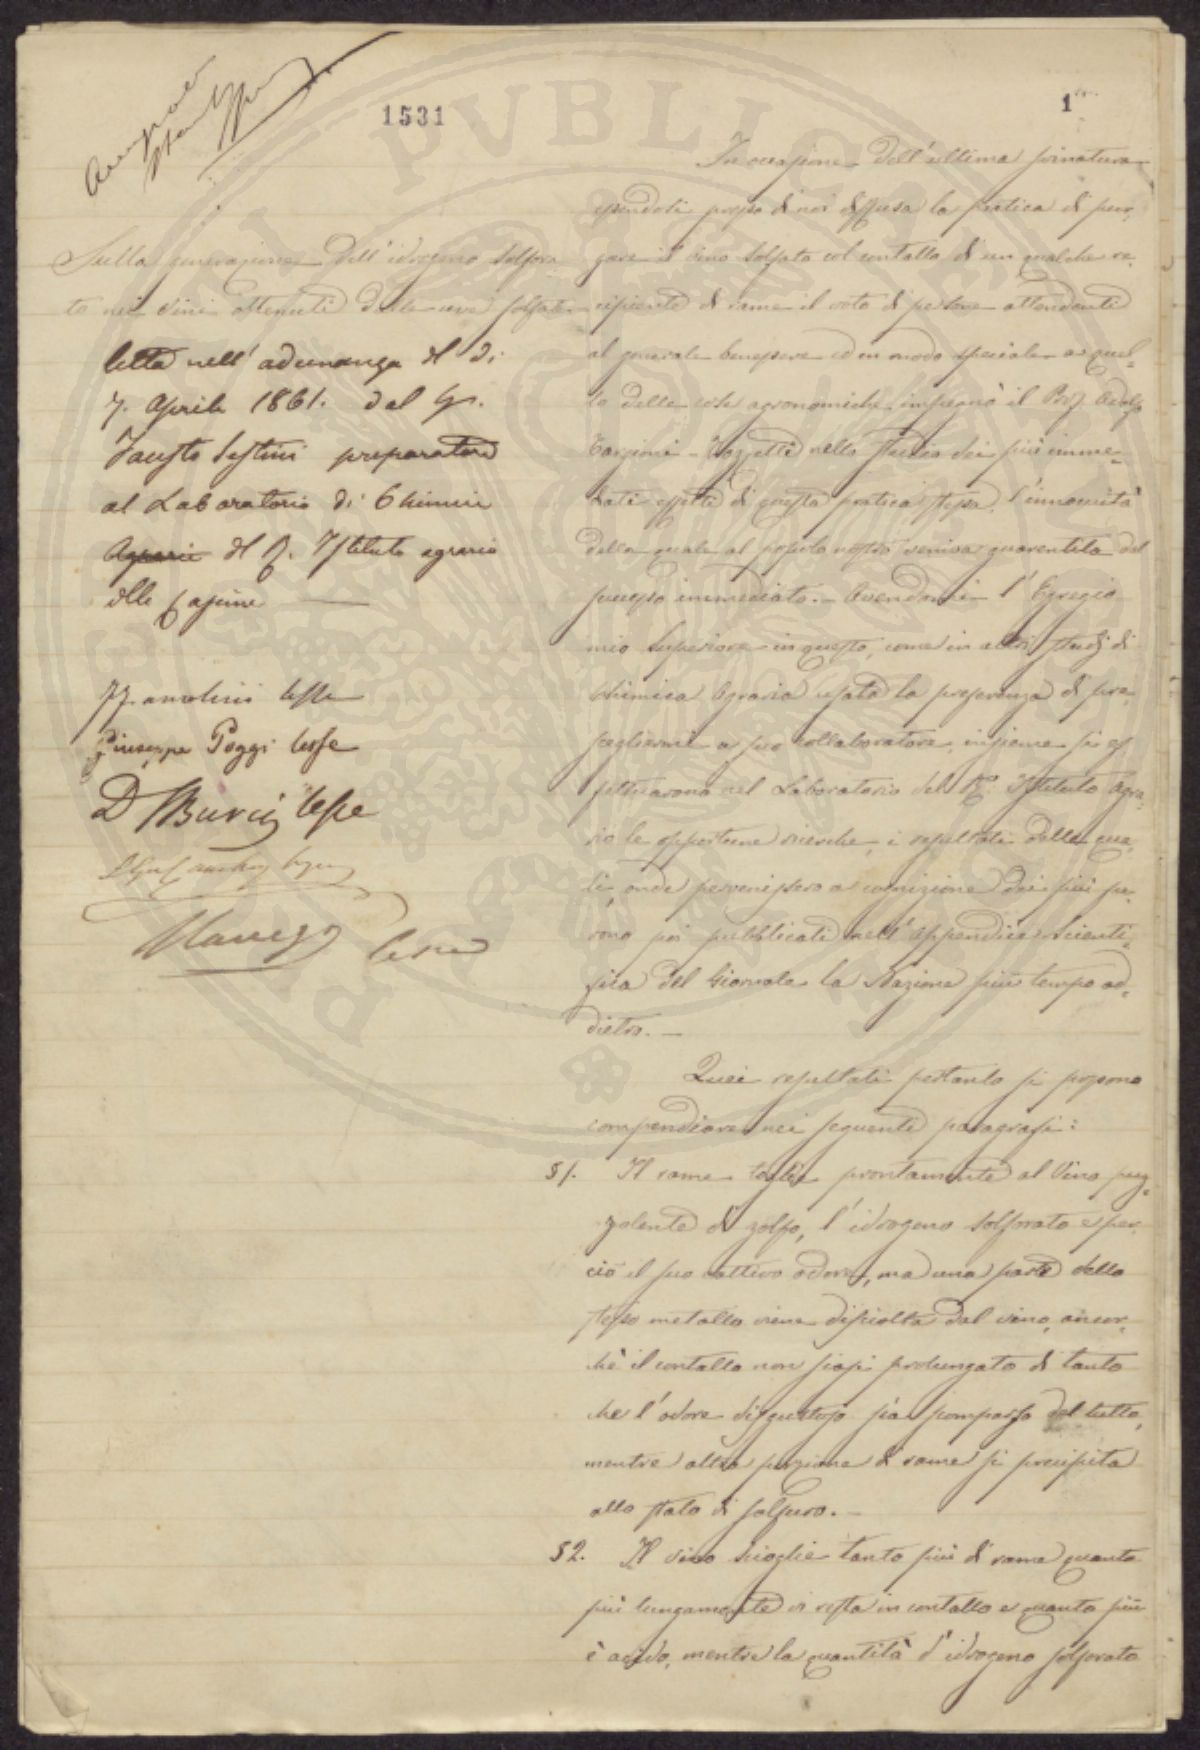 1531
1
Sulla generazione dell'idrogeno solfora
to nei vini ottenuti dalle uve solfate
letta nell'adunanza del dì
7. Aprile 1861. dal Sig.
Fausto Sestini preparatore
al Laboratorio di Chimica
Agraria del R. Istituto agrario
delle Cascine
lesse
Giuseppe Poggi lesse
D Burci lesse
In occasione dell'ultima svinatura
essendosi presso di noi diffusa la pratica di pur,
gare il vino solfato col contatto di un qualche re,
cipiente di rame il voto di persone attendenti
al generale benessere ed in modo speciale a quel,
lo delle cose agronomiche impegnò il Prof. Adolfo
Targioni-Tozzetti nello studio dei più imme,
diati effetti di questa pratica stessa, l'innocuità
della quale al popolo nostro veniva guarentita dal
successo immediato. - Avendomi l'Egregio
mio Superiore in questo, come in altri studj di
Chimica Agraria usata la preferenza di pre,
scegliermi a suo collaboratore, insieme si ef
fettuarono nel Laboratorio del R. Istituto Agra,
rio le opportune ricerche, i resultati delle qua,
li, onde pervenissero a cognizione dei più fu,
rono poi pubblicati nell'Appendice Scienti,
fica del Giornale la Nazione più tempo ad,
dietro. -
Quei resultati pertanto si possono
compendiare nei seguenti paragrafi:
§1. Il rame toglie prontamente al Vino puz,
zolente di zolfo, l'idrogeno solforato e per,
ciò il suo cattivo odore, ma una parte dello
stesso metallo viene disciolta dal vino, ancor,
chè il contatto non siasi prolungato di tanto
che l'odore disgustoso sia scomparso del tutto,
mentre altra porzione di rame si precipita
allo stato di solfuro. -
§2. Il vino scioglie tanto più di rame quanto
più lungamente vi resta in contatto e quanto più
è acido, mentre la quantità d'idrogeno solforato